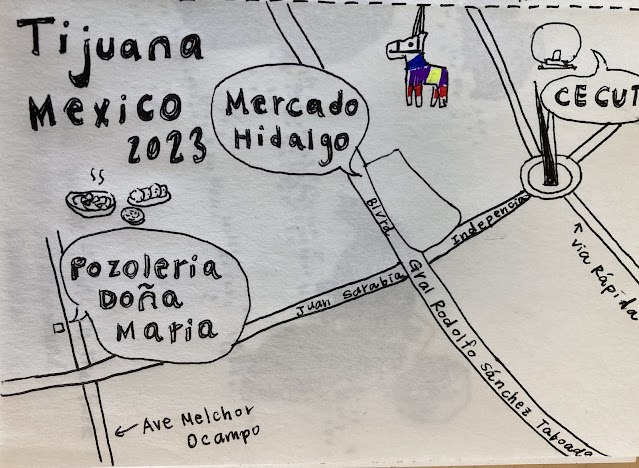 Tijuana
Mexico
2023
Mercado
Hidalgo
CECUT
Pozoleria
Doña
Maria
Blvrd
Gral Rodolfo Sánchez Taboada
Juan Sarabia
Indepencia
via Rápida
Ave Melchor
Ocampo